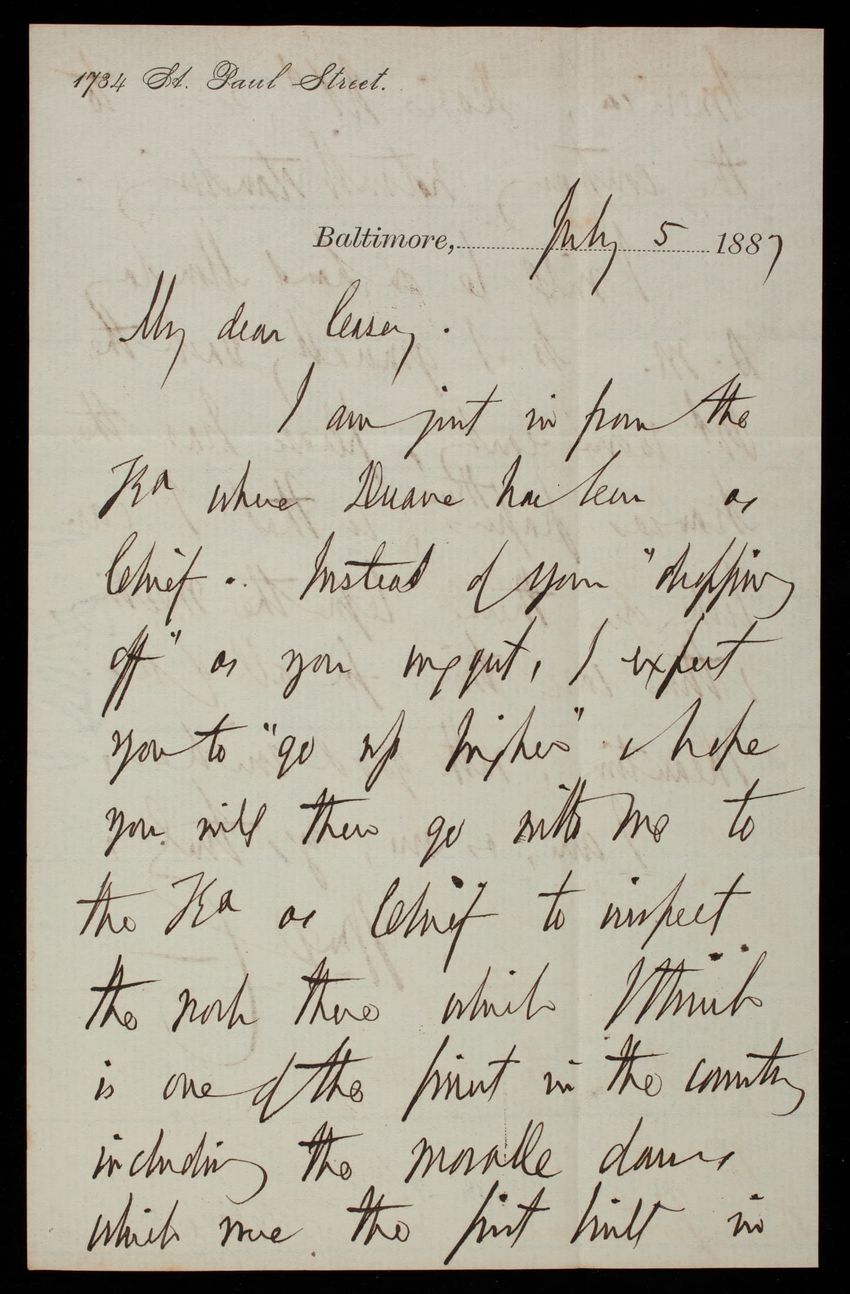 1734 St. Paul Street.
Baltimore, July 5 1887
My dear Casey.
I am just in from the
Ka where Duane has been as
Chief. Instead of your "dropping
off" as you suggest, I expect
you to "go up higher" & hope
you will then go with me to
the Ka as Chief to inspect
the work there which I think
is one of the finest in the country
including the movable dams
which were the first built in